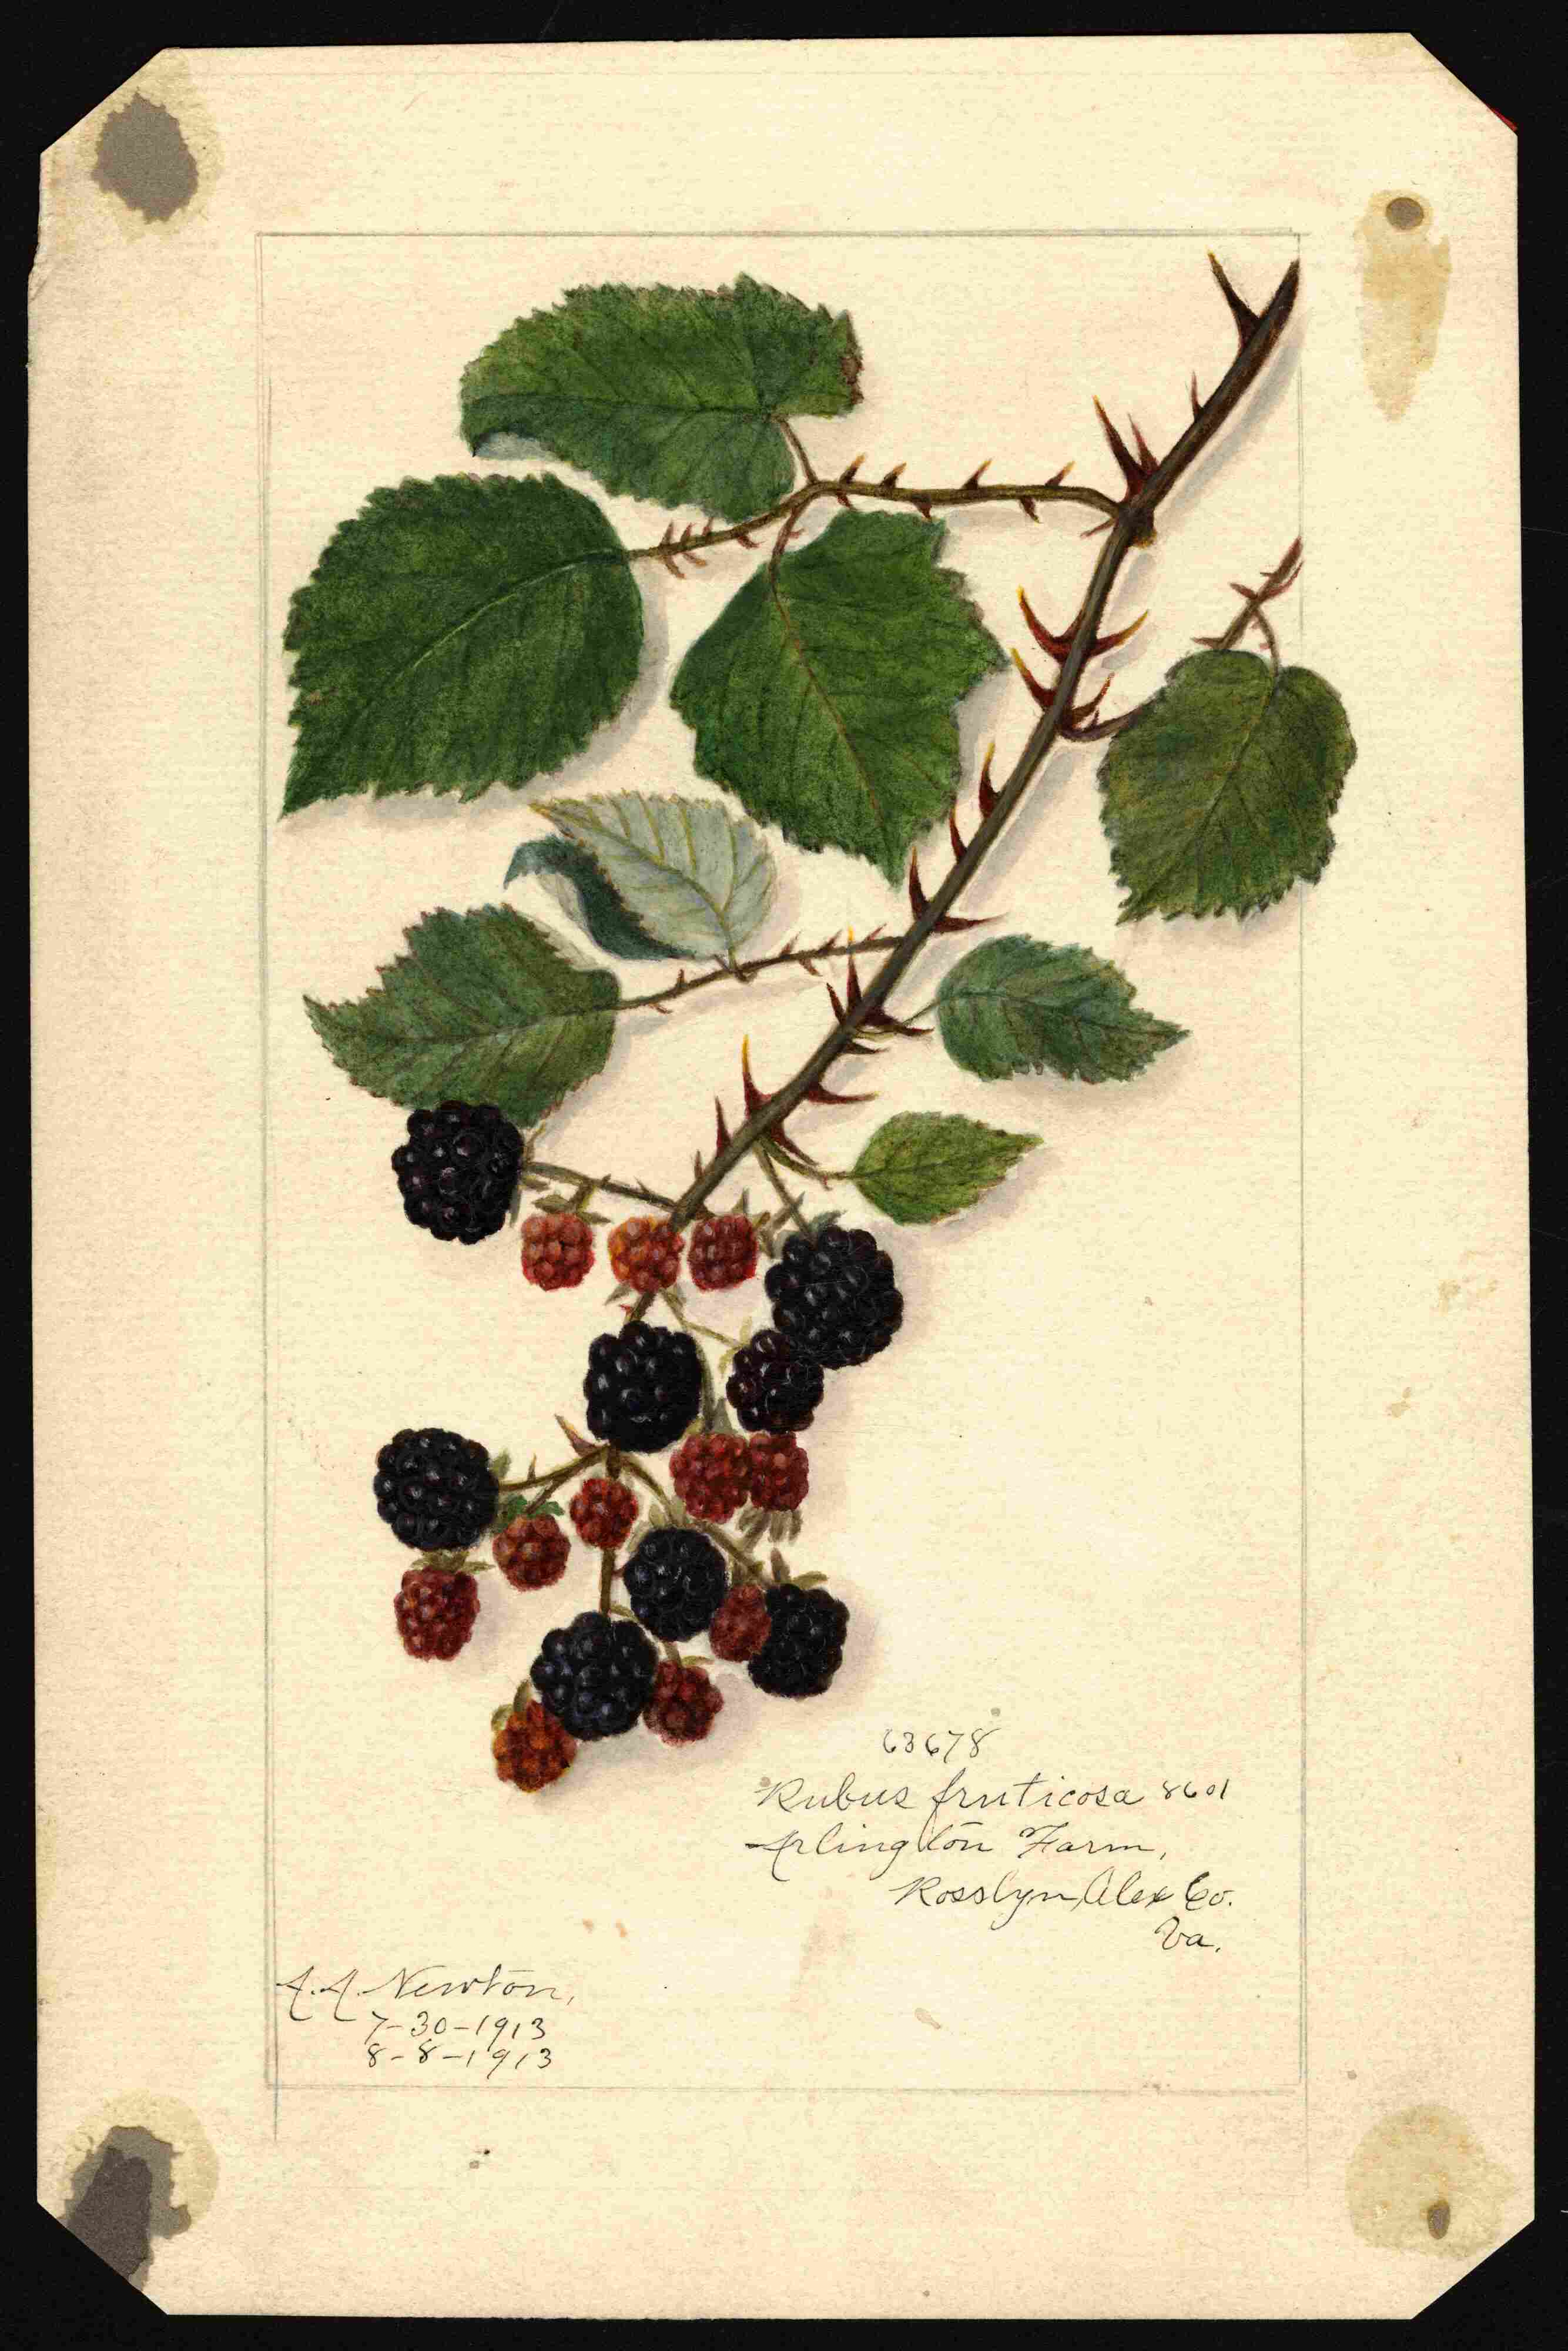 63678
Rubus fruticosa 8601
Arlington Farm,
Rosslyn, Alex Co.
Va.
A.A. Newton,
7-30-1913
8-8-1913